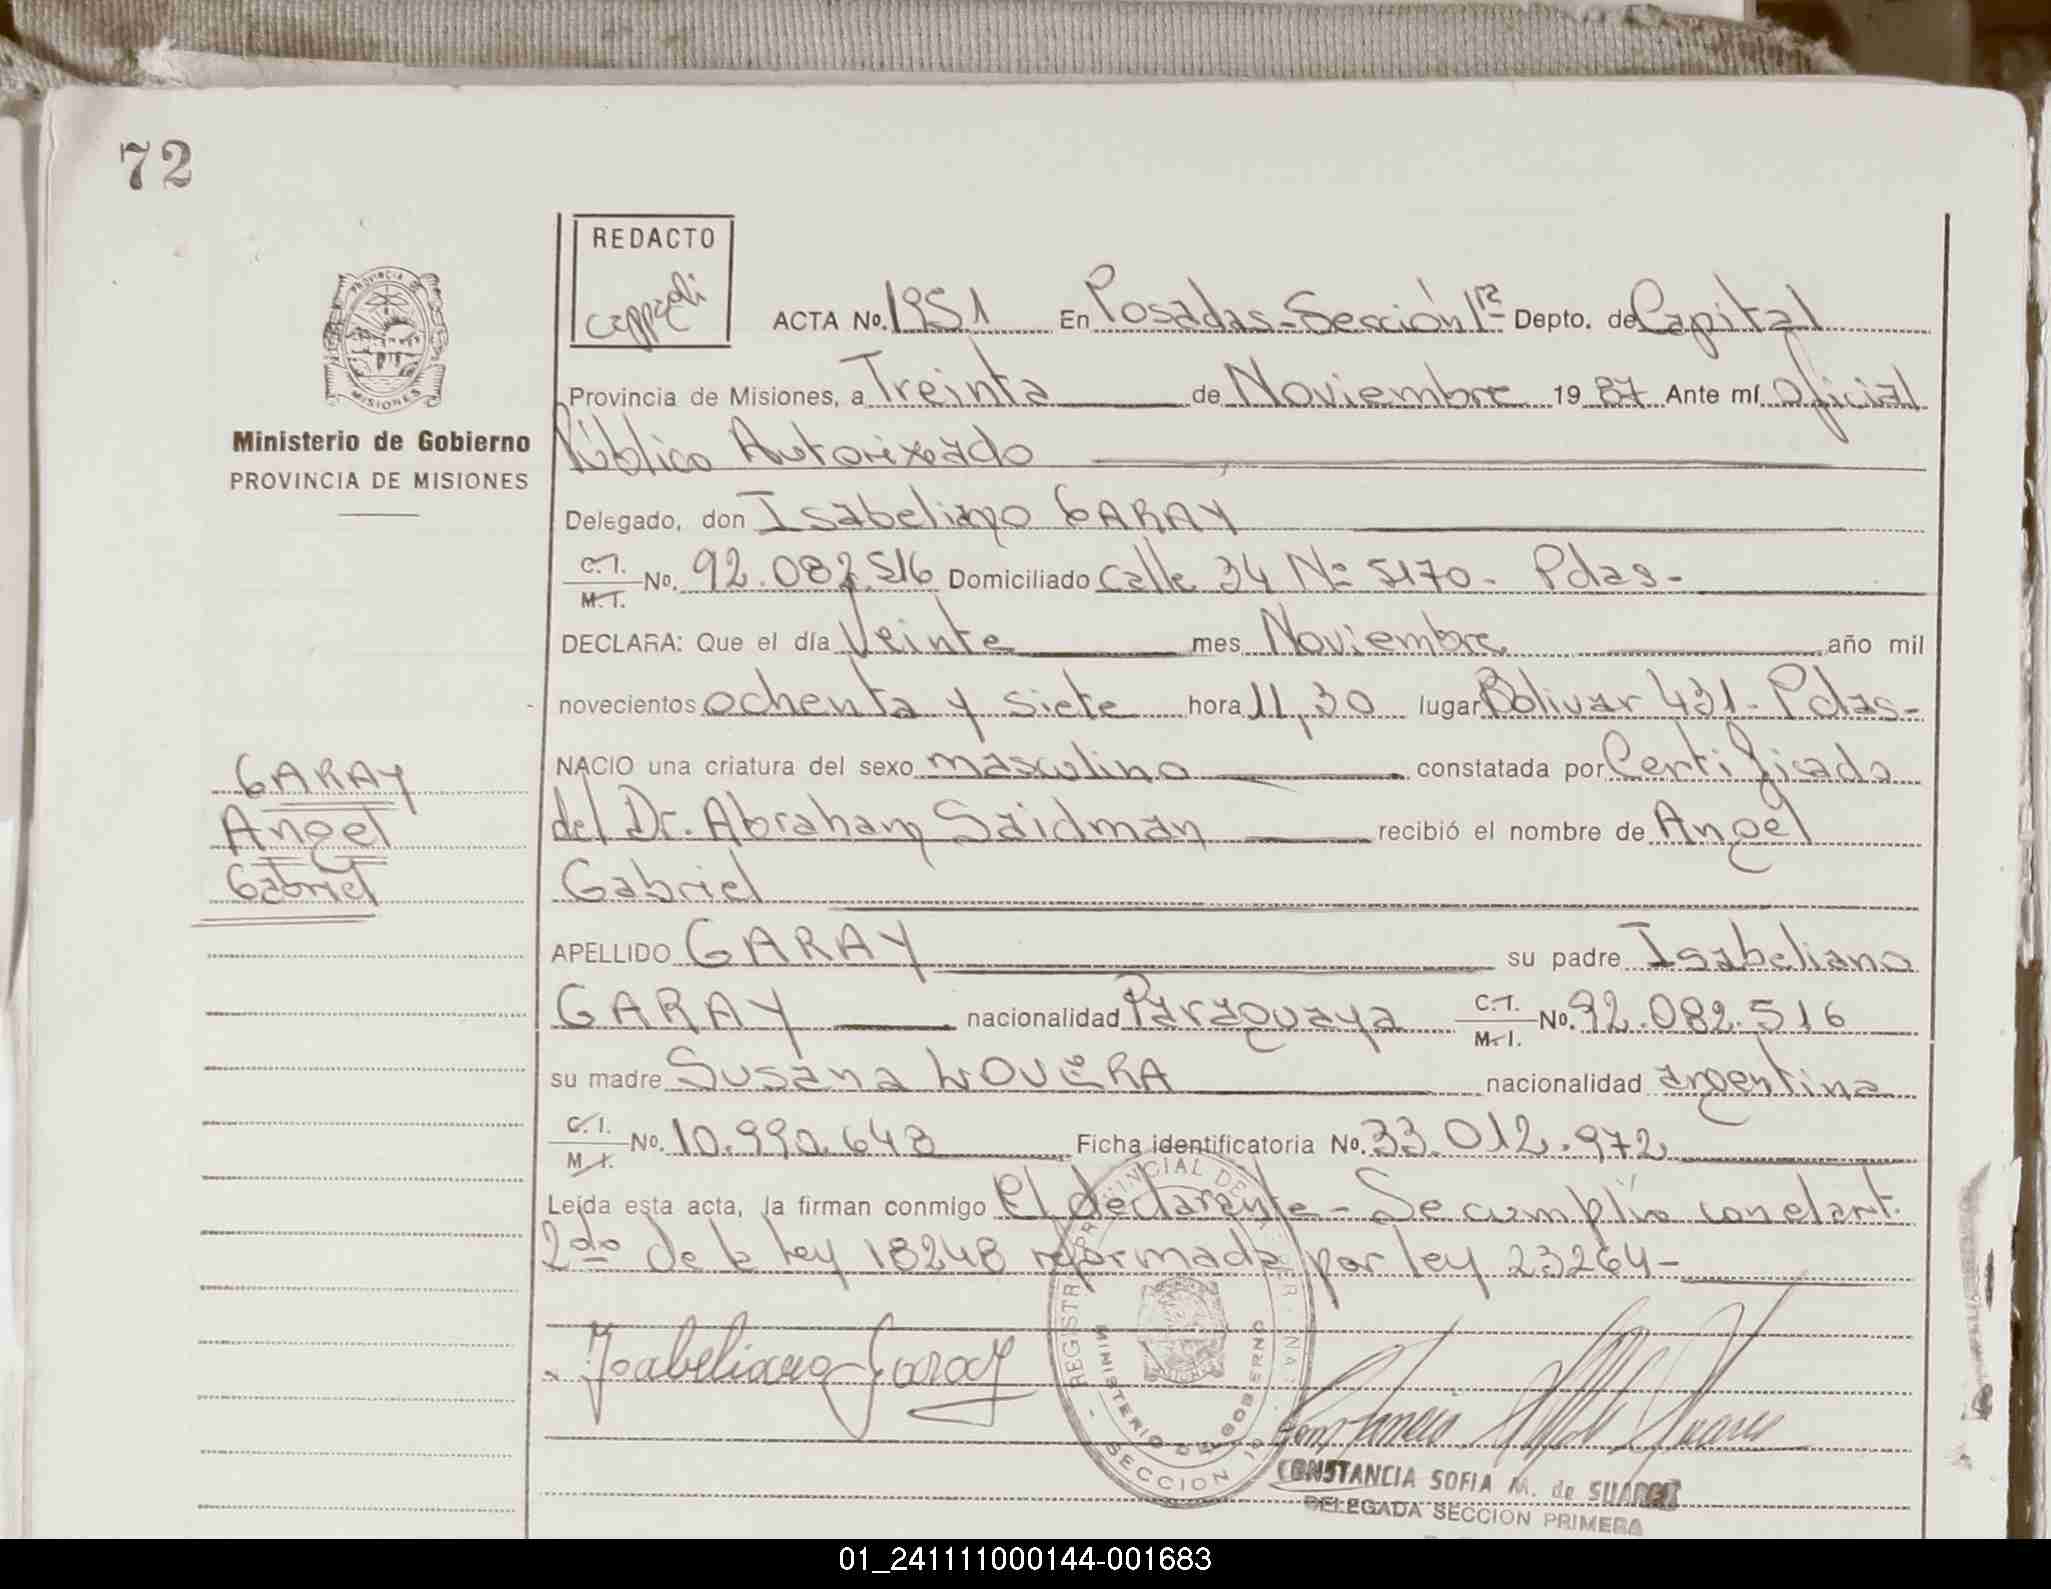 72
REDACTO
PROVINCIA
MISIONES
ACTA No. 1951 En Posadas-Sección 1ra Depto. de Capital
Provincia de Misiones, a Treinta de Noviembre 19 87 Ante mí Oficial
Ministerio de Gobierno
Público Autorizado
PROVINCIA DE MISIONES
Delegado, don Isabeliano GARAY
C.I. M.I. No. 92.082.516 Domiciliado Calle 34 Nº 5170- Pdas-
DECLARA: Que el día Veinte mes Noviembre año mil
novecientos ochenta y siete hora 11,30 lugar Bolivar 431-Pdas-
GARAY
NACIO una criatura del sexo masculino constatada por Certificado
Angel
del Dr. Abraham Saidman recibió el nombre de Angel
Gabriel
Gabriel
APELLIDO GARAY su padre Isabeliano
GARAY nacionalidad Paraguaya C.I. M.I. No. 92.082.516
su madre Susana LOVERA nacionalidad argentina
C.I. M.I. No. 10.990.648 Ficha identificatoria No. 33.012.972
Leída esta acta, la firman conmigo El declarante- Se cumplío con el art.
2do de la ley 18248 reformada por ley 23264-
Isabeliano Garay
MINISTERIO DE GOBIERNO
SECCION 1a
CONSTANCIA SOFIA M. de SUAREZ
DELEGADA SECCION PRIMERA
01_241111000144-001683